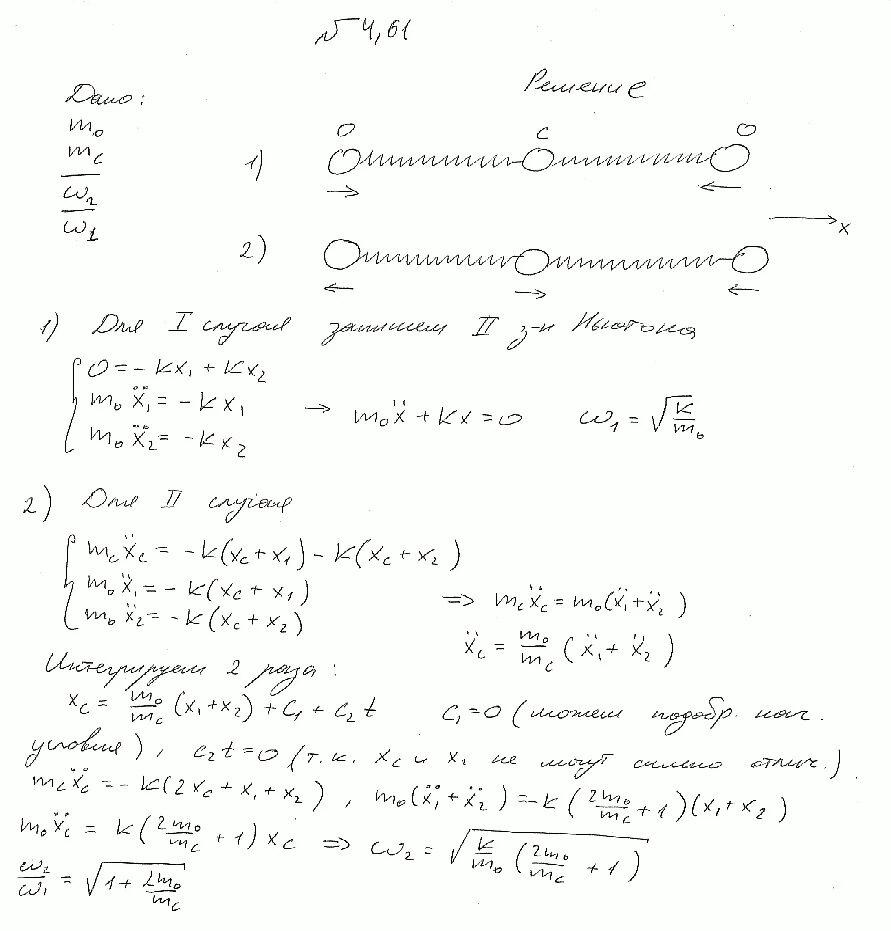 № 4,61
Дано:
m₀
m_c
ω₂
ω₁
Решение
O C O
1)
x
2)
1) Для I случая запишем II з-н Ньютона
0 = - kx₁ + kx₂
m₀ẍ₁ = - kx₁ → m₀ẍ + kx = 0 ω₁ = √(k/m₀)
m₀ẍ₂ = - kx₂
2) Для II случая
m_cẍ_c = -k(x_c + x₁) - k(x_c + x₂)
m₀ẍ₁ = - k(x_c + x₁) => m_cẍ_c = m₀(ẍ₁ + ẍ₂)
m₀ẍ₂ = -k(x_c + x₂) ẍ_c = m₀/m_c (ẍ₁ + ẍ₂)
Интегрируем 2 раза:
x_c = m₀/m_c (x₁ + x₂) + C₁ + C₂t C₁ = 0 (можем подобр. нач.
условие), C₂t = 0 (т.к. x_c и x₁ не могут сильно отлич.)
m_cẍ_c = - k(2x_c + x₁ + x₂), m₀(ẍ₁ + ẍ₂) = -k(2m₀/m_c + 1)(x₁ + x₂)
m₀ẍ_c = k(2m₀/m_c + 1)x_c => ω₂ = √(k/m₀ (2m₀/m_c + 1))
ω₂/ω₁ = √(1 + 2m₀/m_c)